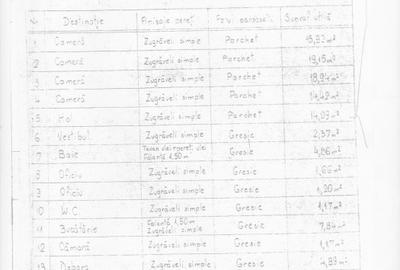 Nr. Destinație Finisaje pereți Supraf. utilă
1 Cameră Zugrăveli simple Parchet
2 Cameră Zugrăveli simple Parchet 19,15 m²
3 Cameră Zugrăveli simple Parchet 18,94 m²
4 Cameră Zugrăveli simple Parchet 14,42 m²
5 Hol Zugrăveli simple Parchet 14,09 m²
6 Vestibul Zugrăveli simple Gresie 2,37 m²
7 Baie Gresie 4,86 m²
Faianță 1,50 m
8 Oficiu Zugrăveli simple Gresie 1,66 m²
9 Oficiu Zugrăveli simple Gresie 1,20 m²
10 W.C. Zugrăveli simple Gresie 1,17 m²
11 Bucătărie Faianță 1,50 m Gresie 7,84 m²
Zugrăveli simple
12 Cămară Zugrăveli simple Gresie 1,17 m²
13 Zugrăveli simple Gresie 4,83 m²